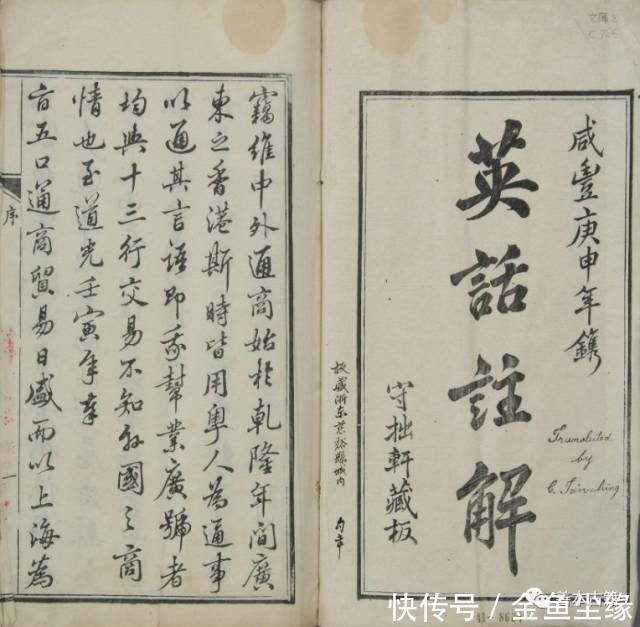 咸豐庚申年鐫
英話註解
守拙軒藏板
Translated
by
板藏浙東慈谿縣城內
竊維中外通商始於乾隆年間廣
東之香港斯時皆用粵人為通事
以通其言語即我幫業廣號者
均與十三行交易不知外國之商
情也至道光壬寅年奉
旨五口通商貿易日盛而以上海為
序
快传号/金鱼尘缘